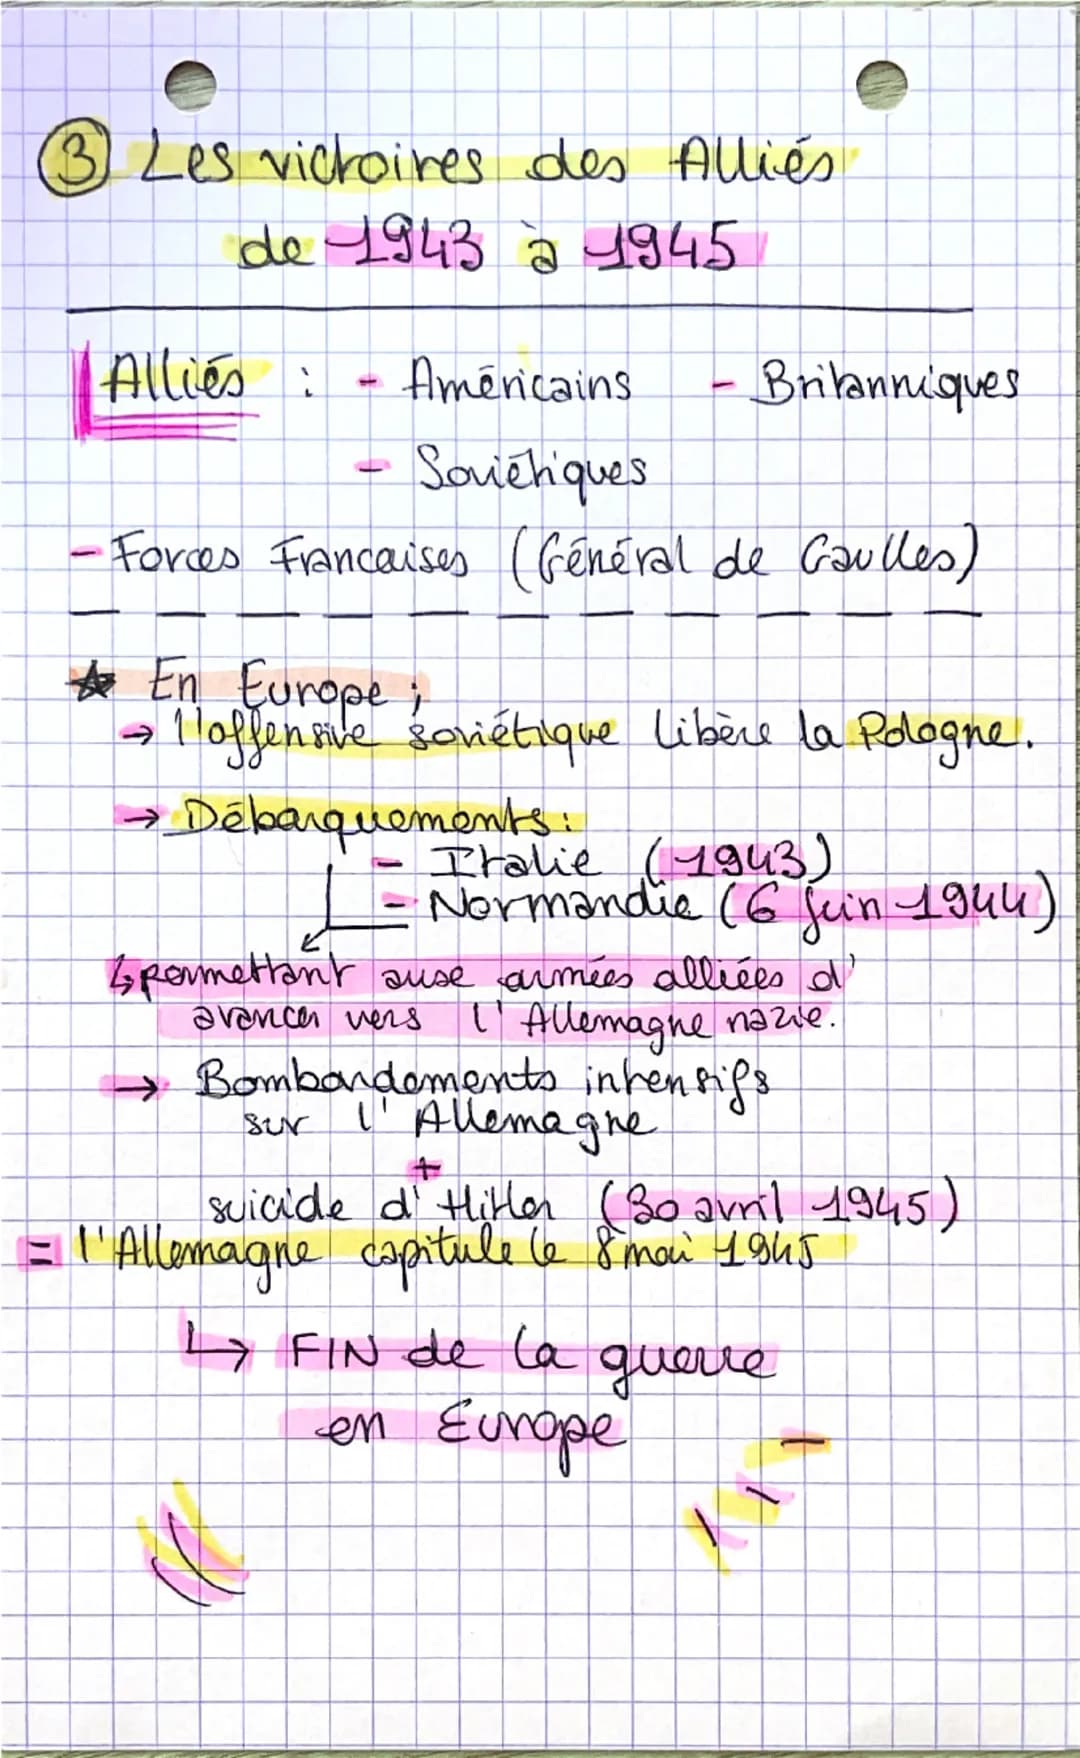 ③ Les victoires des Alliés
de 1943 à 1945
Alliés : - Américains - Britanniques
- Soviétiques
- Forces Francaises (Général de Gaulles)
★ En Europe ;
→ l'offensive soviétique libère la Pologne.
→ Débarquements :
- Italie (1943)
- Normandie (6 juin 1944)
↳ permettant aux armées alliées d'
avancer vers l'Allemagne nazie.
→ Bombardements intensifs
sur l'Allemagne
+
suicide d'Hitler (30 avril 1945)
= l'Allemagne capitule le 8 mai 1945
↳ FIN de la guerre
en Europe